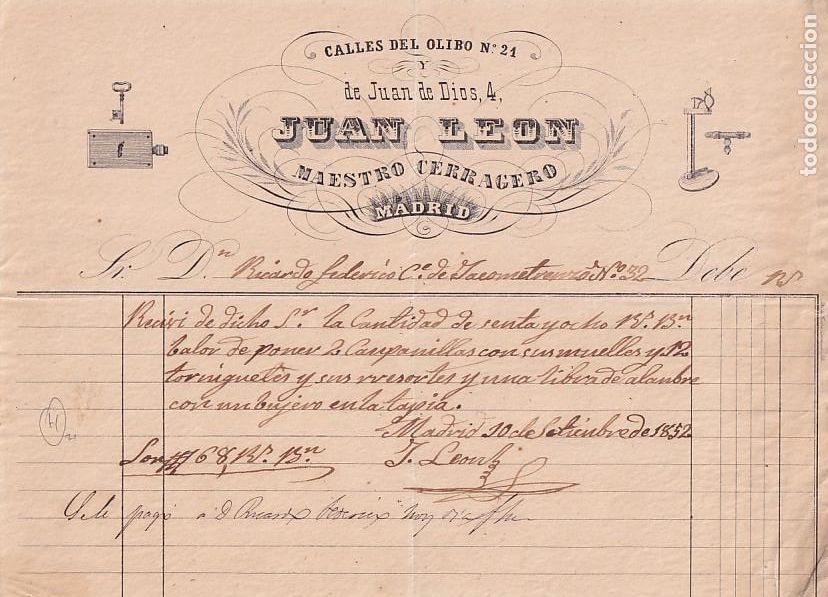 CALLES DEL OLIBO Nº 21
Y
de Juan de Dios, 4,
JUAN LEON
MAESTRO CERRAGERO
MADRID
Sr. Dn Ricardo federico Ce. de Jacometrenzo Nº 32 Debe
Recivi de dicho Sr. la Cantidad de senta y ocho Rs. Bn
balor de poner 2 Campanillas con sus muelles y 12
torniquetes y sus rresortes y una libra de alambre
con un bujero en la tapia.
Madrid 10 de Setiembre de 1852
Son # 68, Rs. Bn
J. Leon
Se le pago a d Ricardo Federico hoy dia
todocoleccion